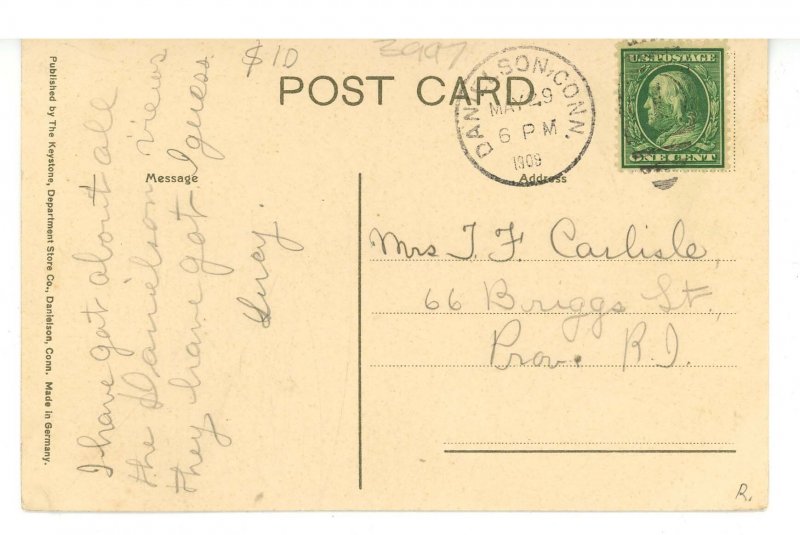 $10
3997
POST CARD
DANIELSON, CONN.
MAY 29
6 PM
1909
U.S. POSTAGE
ONE CENT
Message
Address
I have got about all
the Danielson views
they have got I guess
Lucy.
Mrs J. F. Carlisle,
66 Briggs St.,
Prov. R.I.
R.
Published by The Keystone, Department Store Co., Danielson, Conn. Made in Germany.